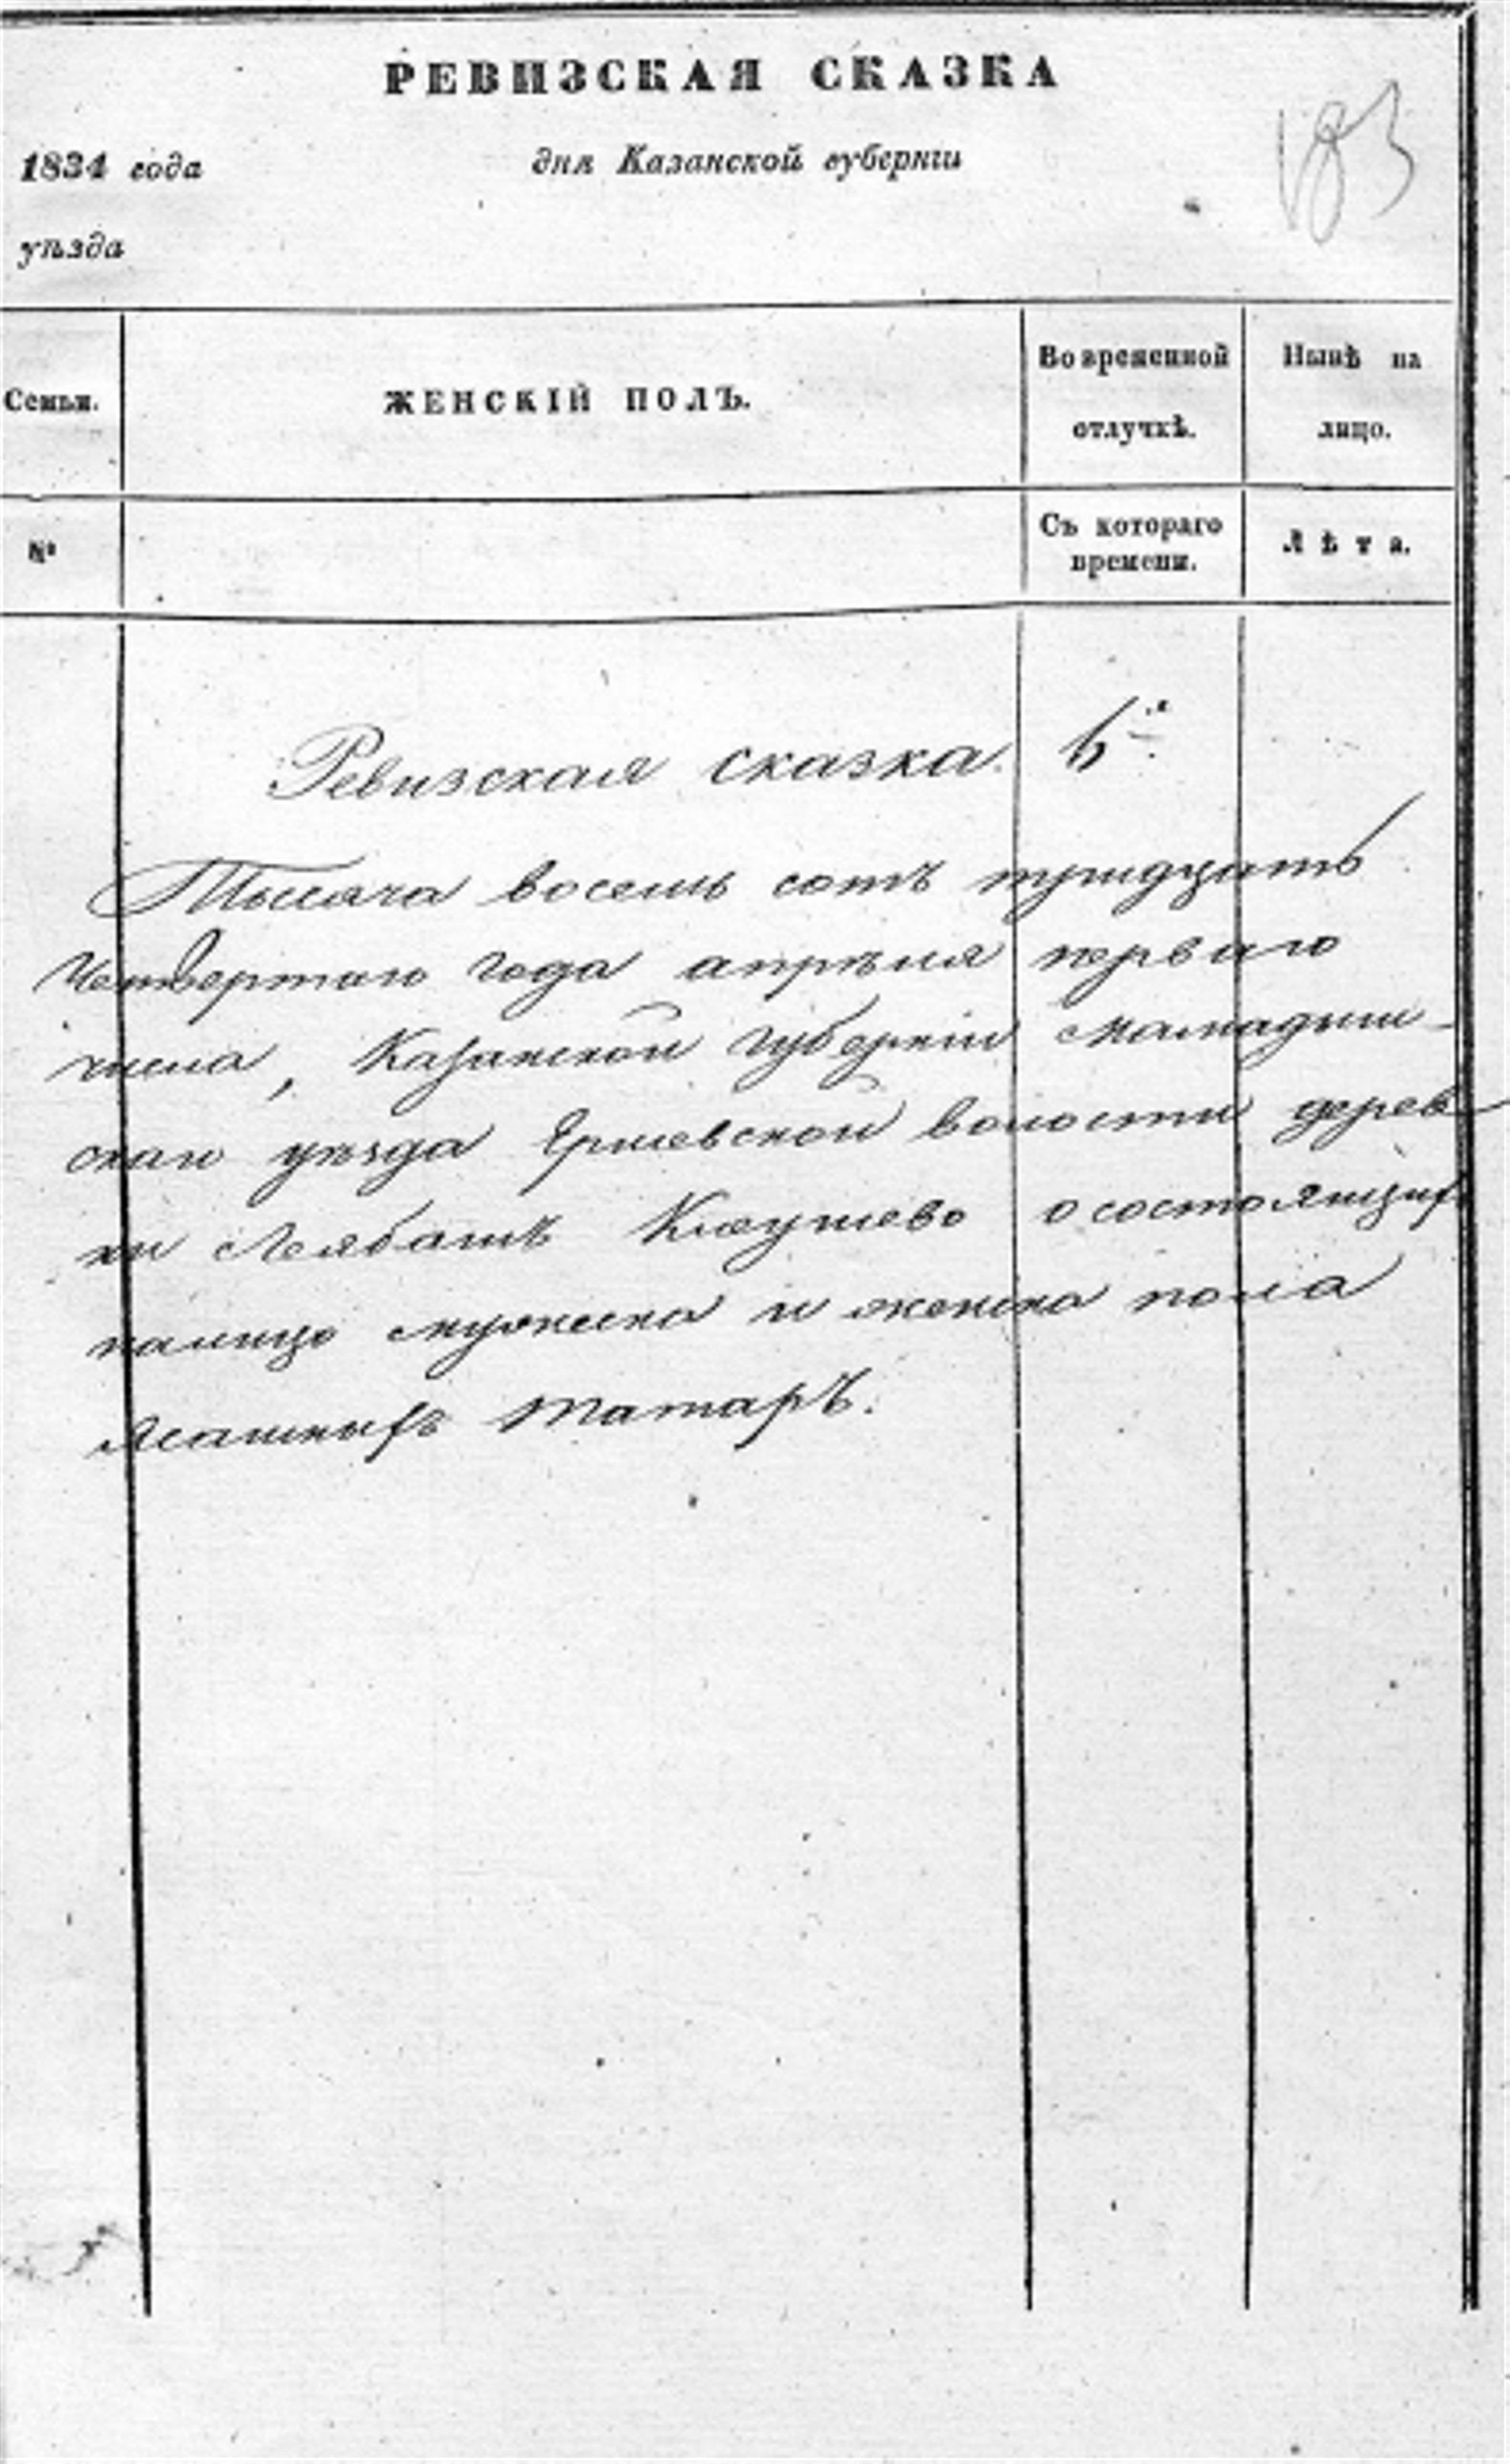 РЕВИЗСКАЯ СКАЗКА
183
1834 года дня Казанской губернiи
уѣзда
Семьи. ЖЕНСКIЙ ПОЛЪ. Во временной отлучкѣ. Нынѣ на лицо.
№ Съ котораго времени. Лѣта.
Ревизская сказка. 6.я
Тысяча восемь сотъ тридцать
Четвертаго года апрѣля перваго
числа, Казанской Губернiи Мамадыш-
скаго уѣзда волости дерев
ни Кляушево о состоящихъ
налицо мужеска и женска пола
Ясашныхъ Татаръ.